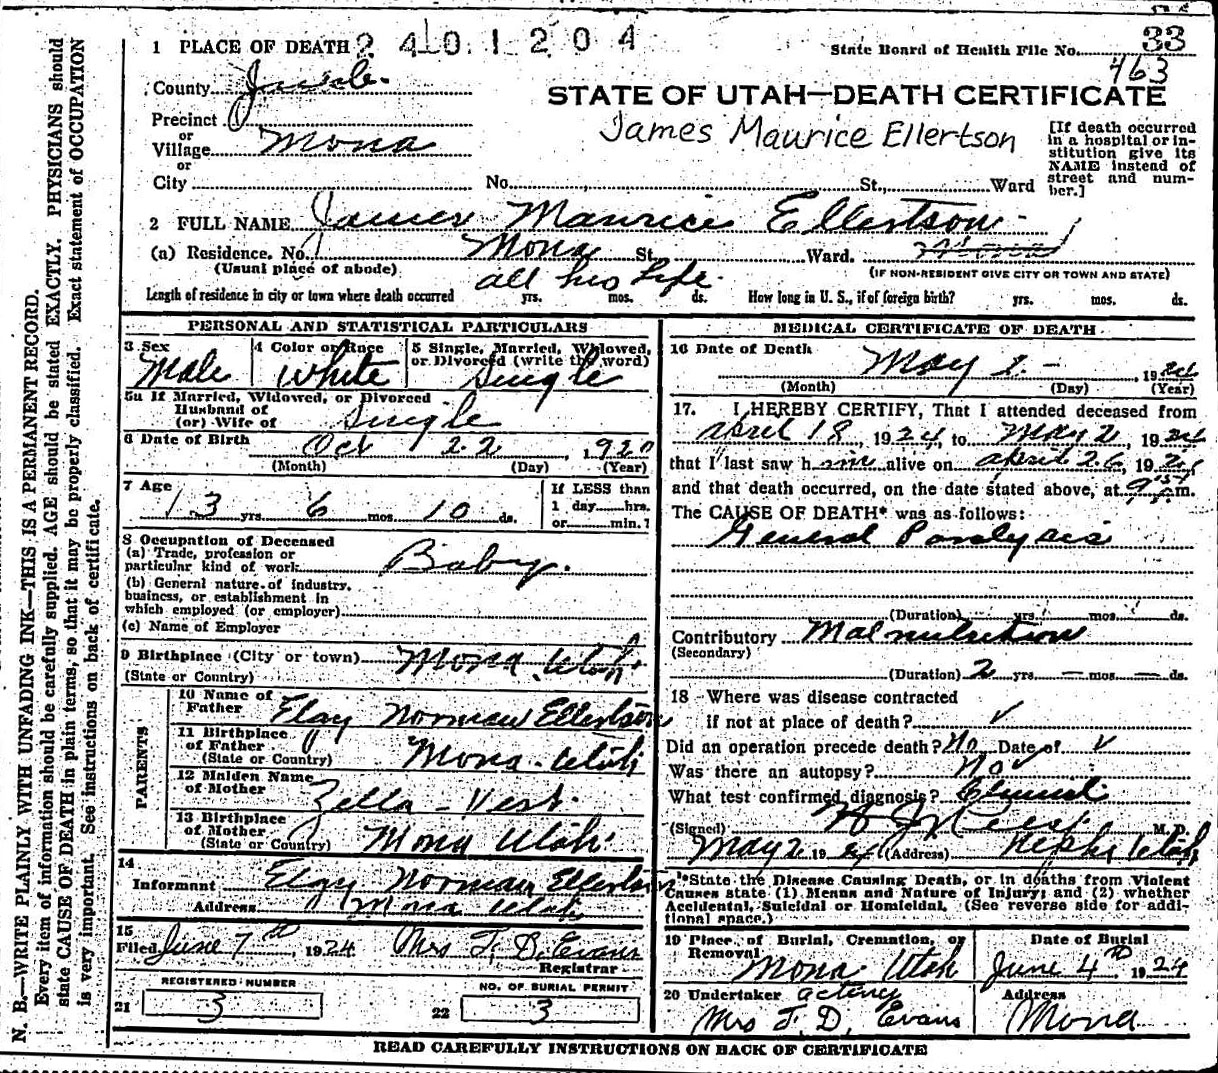 N. B.—WRITE PLAINLY WITH UNFADING INK—THIS IS A PERMANENT RECORD.
Every item of information should be carefully supplied. AGE should be stated EXACTLY. PHYSICIANS should
state CAUSE OF DEATH in plain terms, so that it may be properly classified. Exact statement of OCCUPATION
is very important. See instructions on back of certificate.
1 PLACE OF DEATH 2401204
State Board of Health File No. 33
463
County Juab.
STATE OF UTAH—DEATH CERTIFICATE
James Maurice Ellertson
Precinct
or
Village Mona
or
City No. St., Ward
[If death occurred
in a hospital or in-
stitution give its
NAME instead of
street and num-
ber.]
2 FULL NAME James Maurice Ellertson
(a) Residence. No. Mona St. Ward. Mona
(Usual place of abode)
(IF NON-RESIDENT GIVE CITY OR TOWN AND STATE)
all his life.
Length of residence in city or town where death occurred yrs. mos. ds. How long in U. S., if of foreign birth? yrs. mos. ds.
PERSONAL AND STATISTICAL PARTICULARS
3 Sex
Male
4 Color or Race
White
5 Single, Married, Widowed,
or Divorced (write the word)
Single
5a If Married, Widowed, or Divorced
Husband of
(or) Wife of Single
6 Date of Birth Oct 22, 1920
(Month) (Day) (Year)
7 Age
3 yrs. 6 mos. 10 ds.
If LESS than
1 day hrs.
or min.?
8 Occupation of Deceased
(a) Trade, profession or
particular kind of work Baby.
(b) General nature of industry,
business, or establishment in
which employed (or employer)
(c) Name of Employer
9 Birthplace (City or town) Mona Utah
(State or Country)
PARENTS
10 Name of
Father Elgy Norman Ellertson
11 Birthplace
of Father
(State or Country) Mona Utah
12 Maiden Name
of Mother Zella - Vest
13 Birthplace
of Mother
(State or Country) Mona Utah
14
Informant Elgy Norman Ellertson
Address Mona Utah
15
Filed June 7th 1924 Mrs T. D. Evans
Registrar
REGISTERED NUMBER
21 3
NO. OF BURIAL PERMIT
22 3
MEDICAL CERTIFICATE OF DEATH
16 Date of Death May 2 - 1924
(Month) (Day) (Year)
17. I HEREBY CERTIFY, That I attended deceased from
April 18, 1924, to May 2, 1924
that I last saw him alive on April 26, 1924
and that death occurred, on the date stated above, at p.m.
The CAUSE OF DEATH* was as follows:
General Paralysis
(Duration) yrs. mos. ds.
Contributory Malnutrition
(Secondary)
(Duration) 2 yrs. — mos. — ds.
18 Where was disease contracted
if not at place of death? ✓
Did an operation precede death? No Date of ✓
Was there an autopsy? No ✓
What test confirmed diagnosis? Clinical
(Signed) M. D.
May 2 1924 (Address) Nephi Utah
*State the Disease Causing Death, or in deaths from Violent
Causes state (1) Means and Nature of Injury; and (2) whether
Accidental, Suicidal or Homicidal. (See reverse side for addi-
tional space.)
19 Place of Burial, Cremation, or
Removal
Mona Utah
Date of Burial
June 4th 1924
20 Undertaker acting
Mrs T. D. Evans
Address
Mona
READ CAREFULLY INSTRUCTIONS ON BACK OF CERTIFICATE